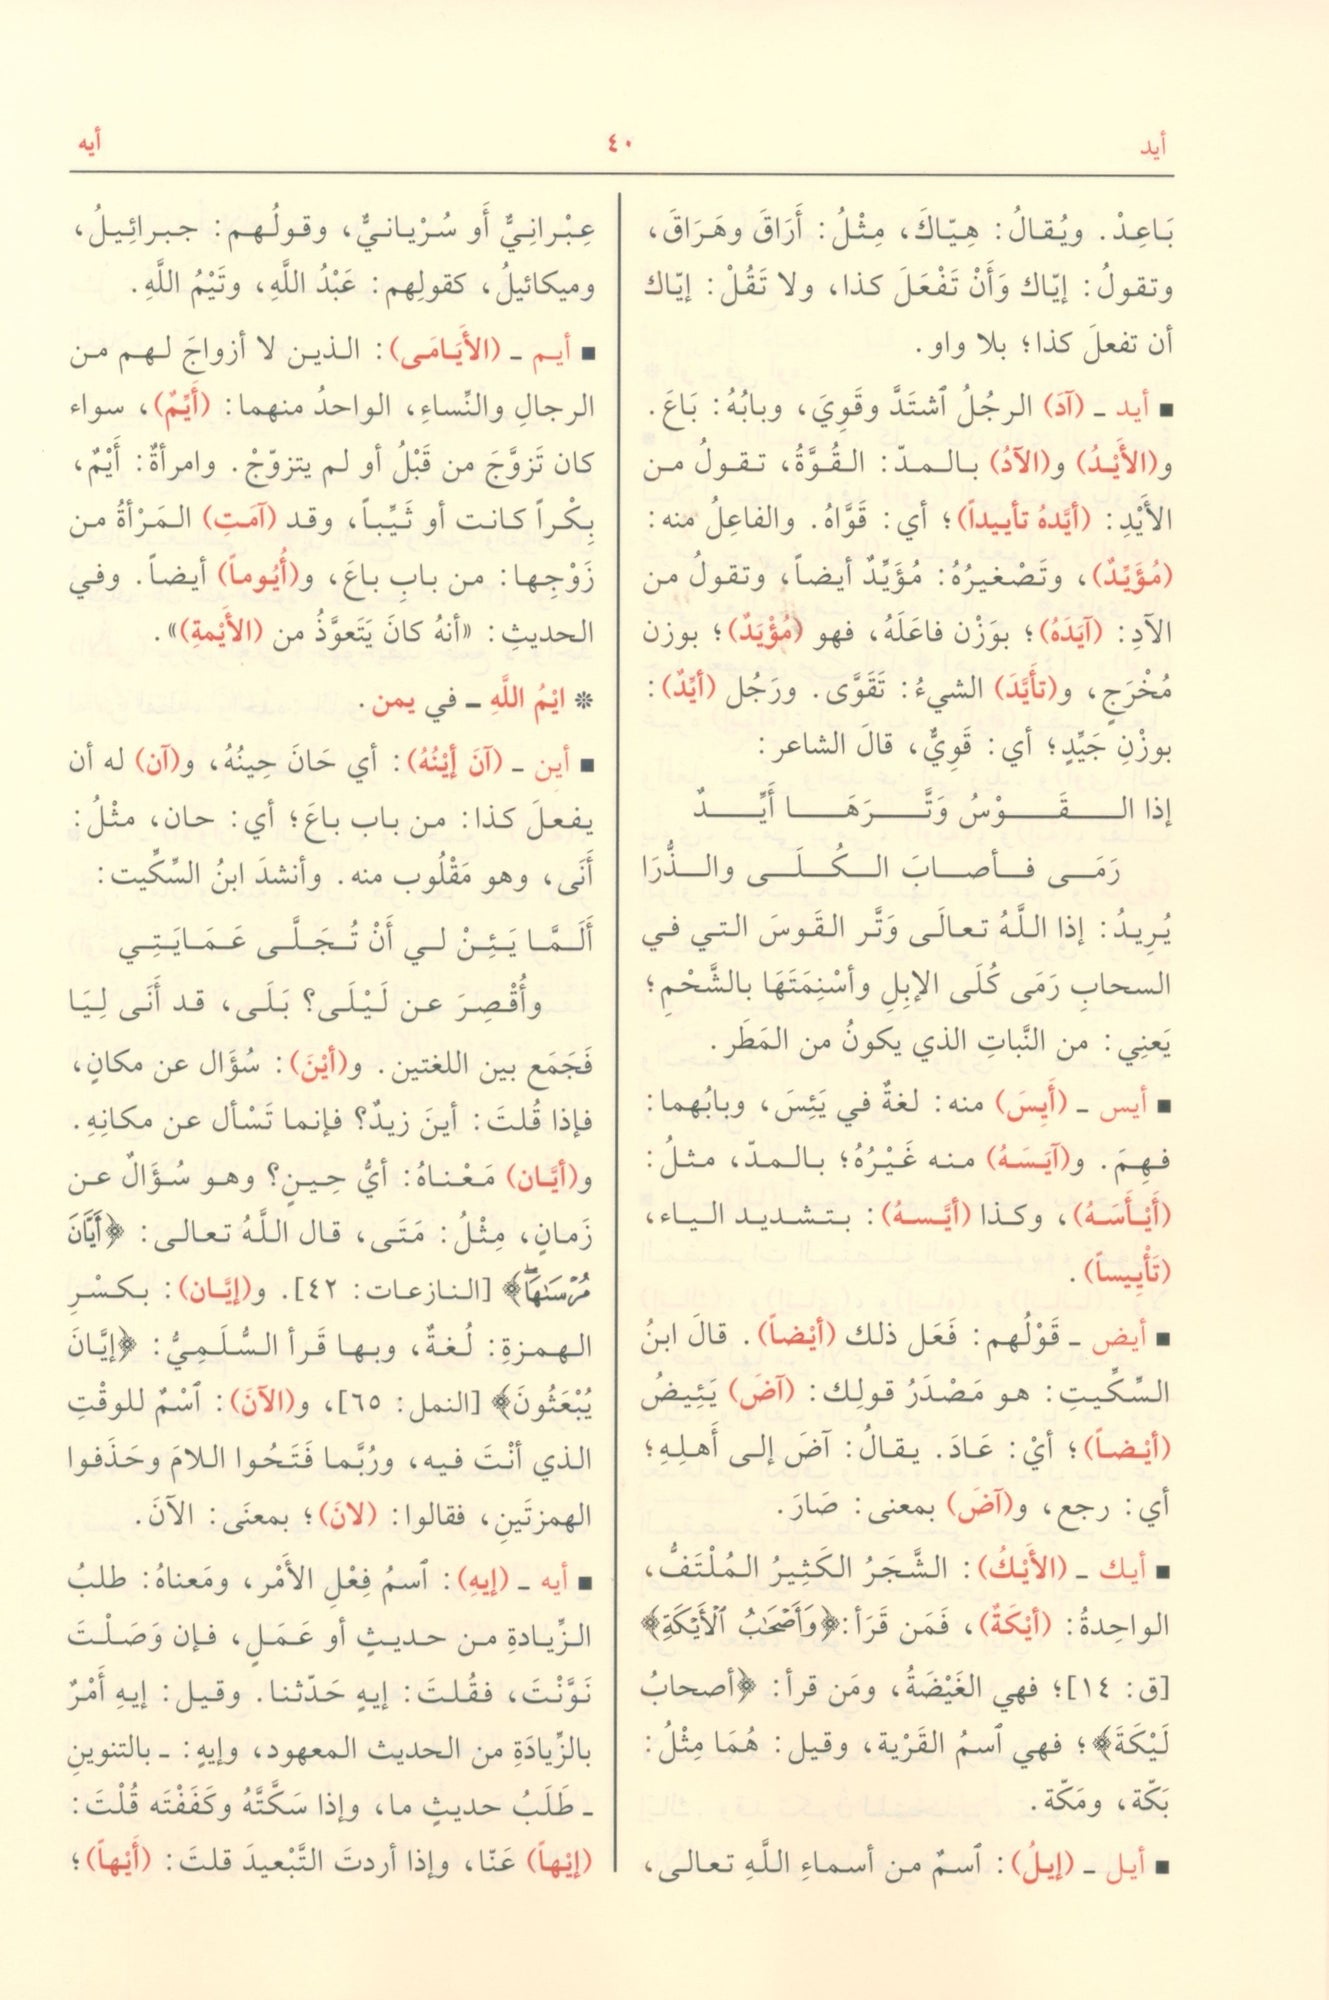 أيد
٤٠
أيه
بَاعِدْ. ويُقالُ: هِيّاكَ، مِثْلُ: أَرَاقَ وهَرَاقَ،
وتقولُ: إيّاك وَأَنْ تَفْعَلَ كذا، ولا تَقُلْ: إيّاك
أن تفعلَ كذا؛ بلا واو.
■ أيد ـ (آدَ) الرجُلُ ٱشتَدَّ وقَوِيَ، وبابُهُ: بَاعَ.
و(الأَيْدُ) و(الآدُ) بالمدّ: القُوَّةُ، تقولُ من
الأَيْدِ: (أيَّدهُ تأييداً)؛ أي: قَوَّاهُ. والفاعِلُ منه:
(مُؤَيِّدٌ)، وتَصْغيرُهُ: مُؤَيِّدٌ أيضاً، وتقولُ من
الآدِ: (آيَدَهُ)؛ بوَزْن فاعَلَهُ، فهو (مُؤْيَدٌ)؛ بوزن
مُخْرَجٍ، و(تأَيَّدَ) الشيءُ: تَقَوَّى. ورَجُل (أَيِّدٌ):
بوزْنِ جَيِّدٍ؛ أي: قَوِيٌّ، قالَ الشاعر:
إذا القَوْسُ وَتَّرَهَا أَيِّدٌ
رَمَى فأصابَ الكُلَى والذُّرَا
يُرِيدُ: إذا اللَّهُ تعالَى وَتَّر القَوسَ التي في
السحابِ رَمَى كُلَى الإبِلِ وأسْنِمَتَهَا بالشَّحْمِ؛
يَعنِي: من النَّباتِ الذي يكونُ من المَطَر.
■ أيس ـ (أَيِسَ) منه: لغةٌ في يَئِسَ، وبابُهما:
فهِمَ. و(آيَسَهُ) منه غَيْرُهُ؛ بالمدّ، مثلُ:
(أَيْأَسَهُ)، وكذا (أيَّسهُ): بتشديد الياء،
(تَأْيِيساً).
■ أيض ـ قَوْلُهم: فَعَل ذلك (أيْضاً). قالَ ابنُ
السِّكِّيتِ: هو مَصْدَرُ قولِك: (آضَ) يَئِيضُ
(أيْضاً)؛ أيْ: عَادَ. يقالُ: آضَ إلى أَهلِهِ؛
أي: رجع، و(آضَ) بمعنى: صَارَ.
■ أيك ـ (الأَيْكُ): الشَّجَرُ الكَثِيرُ المُلْتَفُّ،
الواحِدةُ: (أيْكَةٌ)، فَمَن قَرَأ: ﴿وَأَصْحَٰبُ ٱلْأَيْكَةِ﴾
[ق: ١٤]؛ فهي الغَيْضَةُ، ومَن قرأ: ﴿أصحابُ
لَيْكَةَ﴾؛ فهي ٱسمُ القَرْية، وقيل: هُمَا مِثْلُ:
بَكّة، ومَكّة.
■ أيل ـ (إيلُ): ٱسمٌ من أسماءِ اللَّهِ تعالى،
عِبْرانِيٌّ أَو سُرْيانيٌّ، وقولُهم: جبرائِيلُ،
وميكائيلُ، كقولِهم: عَبْدُ اللَّهِ، وتَيْمُ اللَّهِ.
■ أيم ـ (الأَيَامَى): الذين لا أزواجَ لهم من
الرجالِ والنِّساءِ، الواحدُ منهما: (أَيِّمٌ)، سواء
كان تَزوَّجَ من قَبْلُ أو لم يتزوّجْ. وامرأةٌ: أَيْمٌ،
بِكْراً كانت أو ثَيِّباً، وقد (آمَتِ) المَرْأةُ من
زَوْجِها: من بابِ باعَ، و(أُيُوماً) أيضاً. وفي
الحديثِ: «أنهُ كانَ يَتَعوَّذُ من (الأَيْمةِ)».
❊ ايْمُ اللَّهِ ـ في يمن.
■ أين ـ (آنَ أيْنُهُ): أي حَانَ حِينُهُ، و(آن) له أن
يفعلَ كذا: من باب باعَ؛ أي: حان، مثْلُ:
أَنَى، وهو مَقْلُوب منه. وأنشدَ ابنُ السِّكِّيت:
أَلَمَّا يَئِنْ لي أَنْ تُجَلَّى عَمَايَتِي
وأُقْصِرَ عن لَيْلَى؟ بَلَى، قد أَنَى لِيَا
فَجَمَع بين اللغتين. و(أيْنَ): سُؤَال عن مكانٍ،
فإذا قُلتَ: أينَ زيدٌ؟ فإنما تَسْأل عن مكانِهِ.
و(أيَّان) مَعْناهُ: أيُّ حِينٍ؟ وهو سُؤَالٌ عن
زَمانٍ، مِثْلُ: مَتَى، قال اللَّهُ تعالى: ﴿أَيَّانَ
مُرْسَىٰهَا﴾ [النازعات: ٤٢]. و(إيَّان): بكسْرِ
الهمزةِ: لُغةٌ، وبها قَرأ السُّلَمِيُّ: ﴿إيَّانَ
يُبْعَثُونَ﴾ [النمل: ٦٥]، و(الآنَ): ٱسْمٌ للوقْتِ
الذي أنْتَ فيه، ورُبَّما فَتَحُوا اللامَ وحَذَفوا
الهمزتَينِ، فقالوا: (لانَ)؛ بمعنَى: الآنَ.
■ أيه ـ (إيهِ): ٱسمُ فِعْلِ الأَمْر، ومَعناهُ: طلبُ
الزِّيادةِ من حديثٍ أو عَمَلٍ، فإن وَصَلْتَ
نَوَّنْتَ، فقُلتَ: إيهٍ حَدّثنا. وقيل: إيهِ أَمْرٌ
بالزِّيادَةِ من الحديث المعهود، وإيهٍ: ـ بالتنوينِ
ـ طَلَبُ حديثٍ ما، وإذا سَكَّتَّهُ وكَفَفْتَه قُلْتَ:
(إيْهاً) عَنّا، وإذا أردتَ التَّبْعيدَ قلتَ: (أَيْهاً)؛